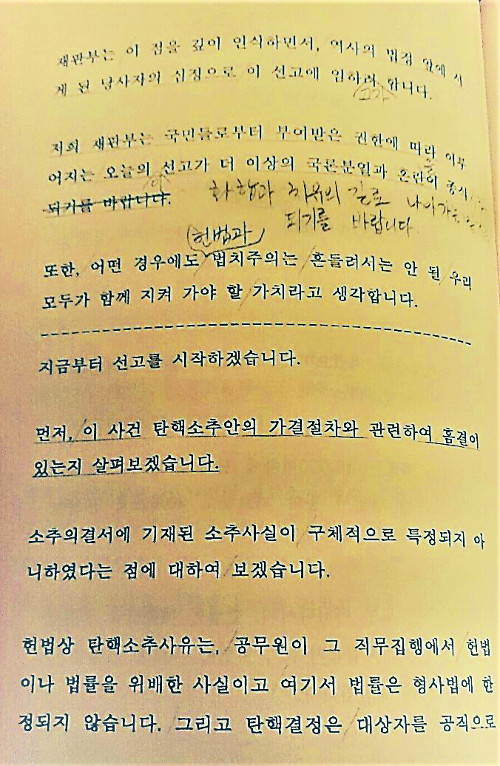 재판부는 이 점을 깊이 인식하면서, 역사의 법정 앞에 서
게 된 당사자의 심정으로 이 선고에 임하려 합니다.
저희 재판부는 국민들로부터 부여받은 권한에 따라 이루
어지는 오늘의 선고가 더 이상의 국론분열과 혼란이 종식
되기를 바랍니다.
화합과 치유의 길로 나아가는
되기를 바랍니다.
헌법과
또한, 어떤 경우에도 법치주의는 흔들려서는 안 될 우리
모두가 함께 지켜 가야 할 가치라고 생각합니다.
지금부터 선고를 시작하겠습니다.
먼저, 이 사건 탄핵소추안의 가결절차와 관련하여 흠결이
있는지 살펴보겠습니다.
소추의결서에 기재된 소추사실이 구체적으로 특정되지 아
니하였다는 점에 대하여 보겠습니다.
헌법상 탄핵소추사유는, 공무원이 그 직무집행에서 헌법
이나 법률을 위배한 사실이고 여기서 법률은 형사법에 한
정되지 않습니다. 그리고 탄핵결정은 대상자를 공직으로